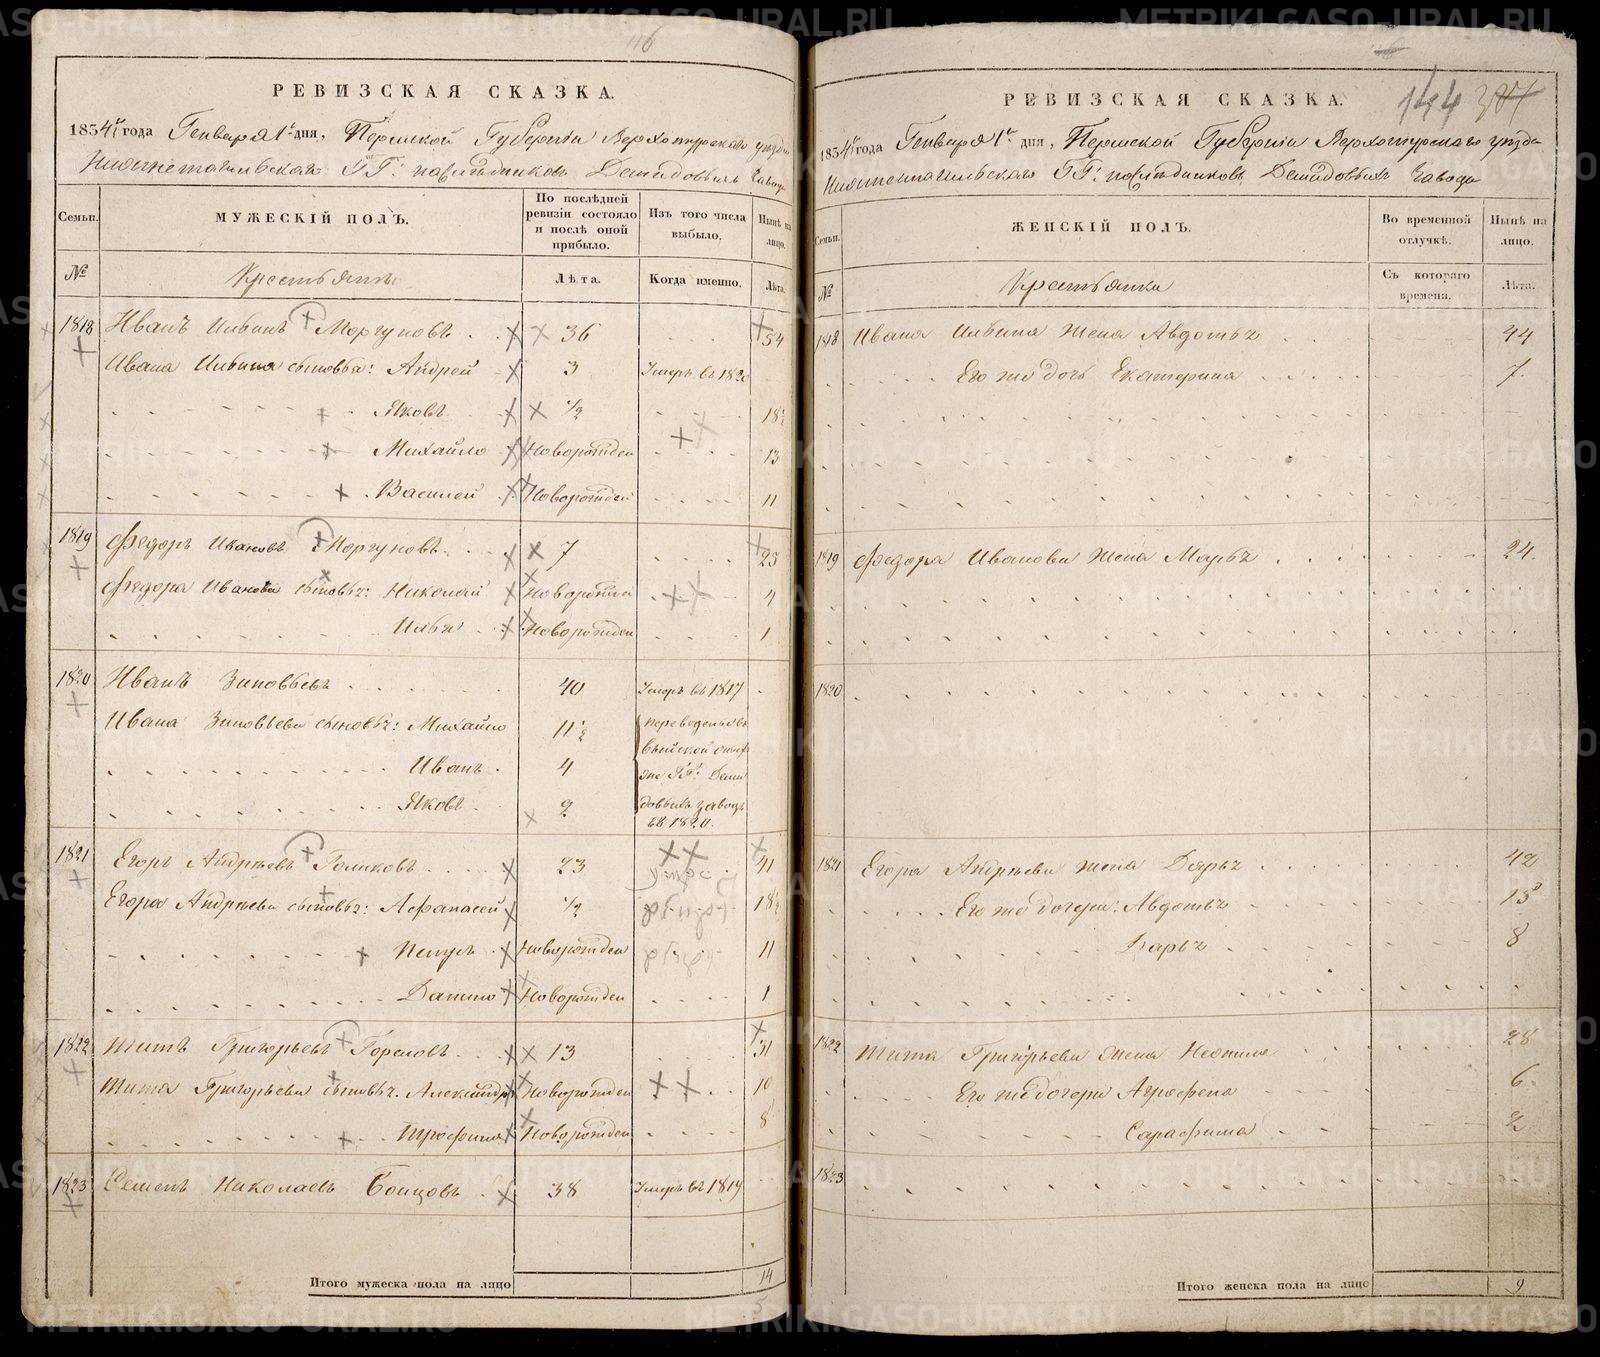 РЕВИЗСКАЯ СКАЗКА.
1834 года Генваря 1 дня, Пермской Губернiи Верхотурскаго уезда
Нижнетагильскаго ГГ: наследниковъ Демидовыхъ завода
Семьи.
МУЖЕСКIЙ ПОЛЪ.
По послѣдней ревизiи состояло и послѣ оной прибыло.
Изъ того числа выбыло.
Нынѣ на лицо.
№
Крестьяне
Лѣта.
Когда именно.
Лѣта.
1818 Иванъ Ильинъ Моргуновъ 36 54
Ивана Ильина сыновья: Андрей 3 Умеръ въ 1820
Яковъ 1/2 18 1/2
Михайло Новорожден 13
Василей Новорожден 11
1819 Федоръ Ивановъ Моргуновъ 7 25
Федора Иванова сыновья: Николай Новорожден 4
Илья Новорожден 1
1820 Иванъ Зиновьевъ 40 Умеръ въ 1817
Ивана Зиновьева сыновья: Михайло 11 1/2 переведены въ
Иванъ 4
Яковъ 2
Выйской
же ГГ: Деми
довыхъ заводъ
въ 1820.
1821 Егоръ Андреевъ Голиковъ 23 41
Егора Андреева сыновья: Афанасей 1/2 18 1/2
Петръ Новорожден 11
Данило Новорожден 1
1822 Титъ Григорьевъ Гореловъ 13 31
Тита Григорьева сыновья: Александръ Новорожден 10
Трофимъ Новорожден 8
1823 Семенъ Николаевъ Боицовъ 38 Умеръ въ 1819
Итого мужеска пола на лицо 14
144
РЕВИЗСКАЯ СКАЗКА.
1834 года Генваря 1 дня, Пермской Губернiи Верхотурскаго уезда
Нижнетагильскаго ГГ: наследниковъ Демидовыхъ завода
Семьи.
ЖЕНСКIЙ ПОЛЪ.
Во временной отлучкѣ.
Нынѣ на лицо.
№
Крестьянки
Съ котораго времени.
Лѣта.
1818 Ивана Ильина жена Авдотья 44
Его же дочь Екатерина 7
1819 Федора Иванова жена Марья 24
1820
1821 Егора Андреева жена Дарья 42
Его же дочери: Авдотья 15
Дарья 8
1822 Тита Григорьева жена Неонила 28
Его же дочери Агрофена 6
Сарафима 2
1823
Итого женска пола на лицо 9
METRIKI.GASO-URAL.RU